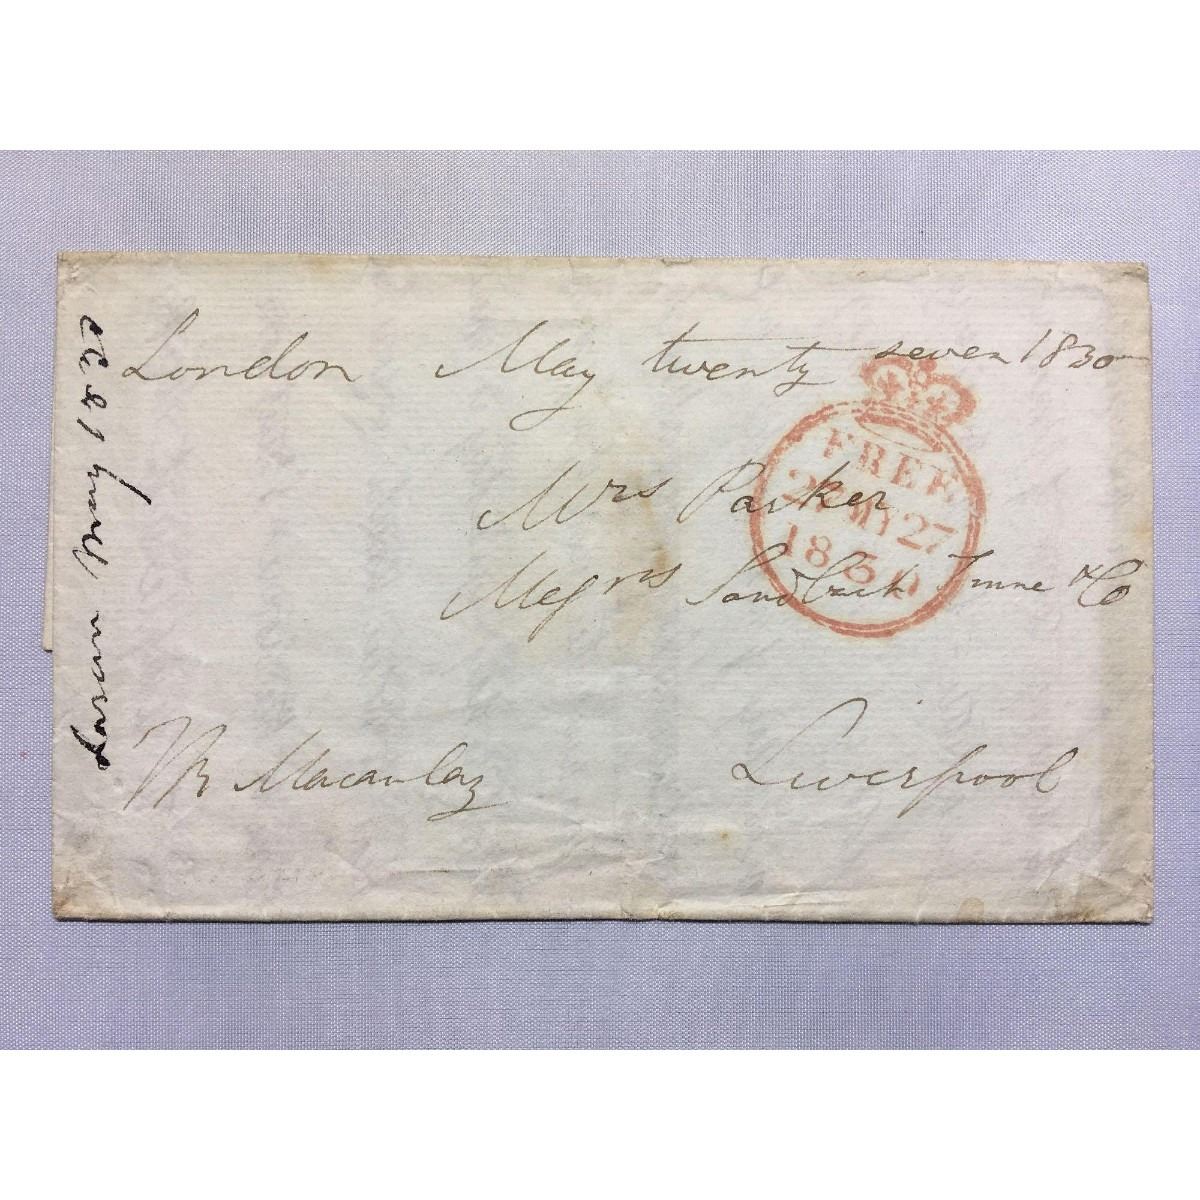 London May twenty seven 1830
Mrs Parker
Messrs Sandbach Tinne & Co
Liverpool
Macaulay
FREE
27 MY 27
1830